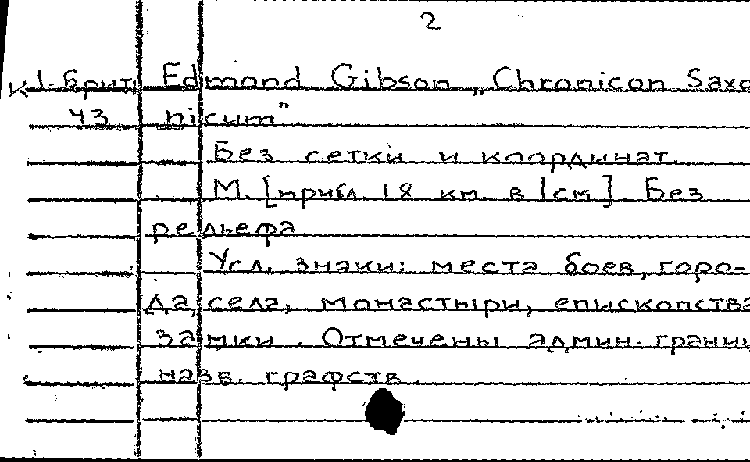 2
К 1-Брит Edmond Gibson „Chronicon Saxo
43 nicum"
Без сетки и координат.
М. [прибл. 18 км. в 1см]. Без
рельефа
Усл. знаки: места боев, горо-
да, села, монастыри, епископства
замки. Отмечены админ. границ
назв. графств.